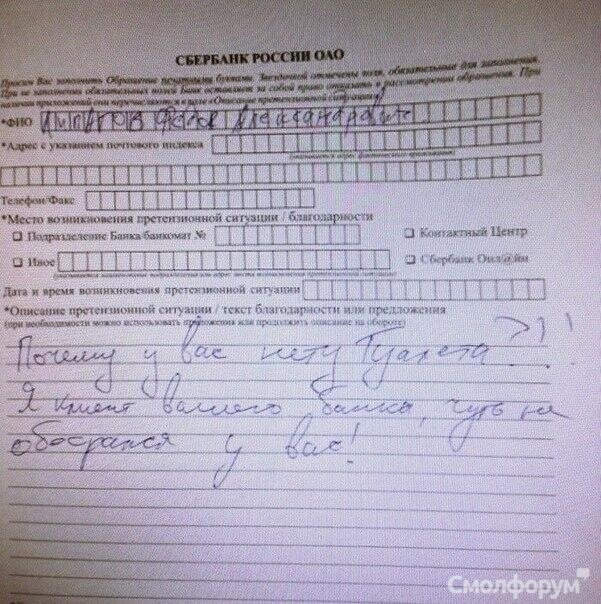 СБЕРБАНК РОССИИ ОАО
Просим Вас заполнить Обращение печатными буквами. Звездочкой отмечены поля, обязательные для заполнения.
При не заполнении обязательных полей Банк оставляет за собой право отказать в рассмотрении обращения. При
наличии приложений они перечисляются в поле «Описание претензионной ситуации»
*ФИО
*Адрес с указанием почтового индекса
(указывается адрес фактического проживания)
Телефон/Факс
*Место возникновения претензионной ситуации / благодарности
Подразделение Банка/банкомат № Контактный Центр
Иное Сбербанк Онл@йн
(указывается наименование подразделения или адрес места возникновения претензионной ситуации)
Дата и время возникновения претензионной ситуации
*Описание претензионной ситуации / текст благодарности или предложения
(при необходимости можно использовать приложения или продолжить описание на обороте)
Почему у вас нету Туалета?!!
Я клиент вашего банка, чуть не
обосрался у вас!
Смолфорум